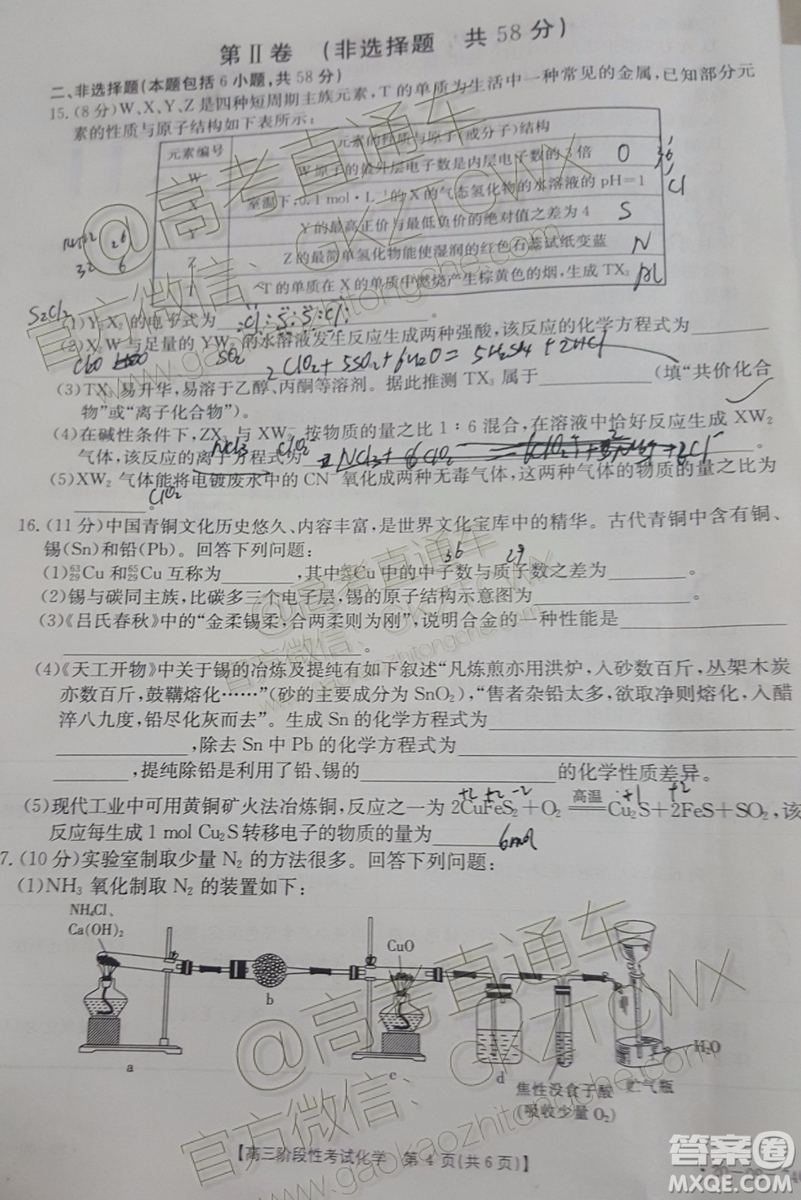 第Ⅱ卷 (非选择题 共58分)
二、非选择题(本题包括6小题,共58分)
15.(8分)W、X、Y、Z是四种短周期主族元素,T的单质为生活中一种常见的金属,已知部分元
素的性质与原子结构如下表所示:
元素编号 元素的性质与原子(或分子)结构
W W原子的最外层电子数是内层电子数的3倍 O
室温下,0.1 mol·L⁻¹的X的气态氢化物的水溶液的pH=1 Cl
Y的最高正价与最低负价的绝对值之差为4 S
Z Z的最简单氢化物能使湿润的红色石蕊试纸变蓝 N
T的单质在X的单质中燃烧产生棕黄色的烟,生成TX₃
S₂Cl₂
(1)Y₂X₂的电子式为 :Cl:S:S:Cl: 。
(2)XW₂与足量的YW₂的水溶液发生反应生成两种强酸,该反应的化学方程式为
SO₂ 2ClO₂+5SO₂+6H₂O=5H₂SO₄+2HCl
(3)TX₃易升华,易溶于乙醇、丙酮等溶剂。据此推测TX₃属于 (填“共价化合
物”或“离子化合物”)。
(4)在碱性条件下,ZX₃与XW₂⁻按物质的量之比1∶6混合,在溶液中恰好反应生成XW₂
NCl₃ ClO₂⁻
气体,该反应的离子方程式为 。
(5)XW₂气体能将电镀废水中的CN⁻氧化成两种无毒气体,这两种气体的物质的量之比为
ClO₂ 。
16.(11分)中国青铜文化历史悠久、内容丰富,是世界文化宝库中的精华。古代青铜中含有铜、
锡(Sn)和铅(Pb)。回答下列问题:
36 29
(1)⁶³₂₉Cu和⁶⁵₂₉Cu互称为 ,其中⁶⁵₂₉Cu中的中子数与质子数之差为 。
(2)锡与碳同主族,比碳多三个电子层,锡的原子结构示意图为 。
(3)《吕氏春秋》中的“金柔锡柔,合两柔则为刚”,说明合金的一种性能是
。
(4)《天工开物》中关于锡的冶炼及提纯有如下叙述“凡炼煎亦用洪炉,入砂数百斤,丛架木炭
亦数百斤,鼓鞲熔化……”(砂的主要成分为SnO₂),“售者杂铅太多,欲取净则熔化,入醋
淬八九度,铅尽化灰而去”。生成Sn的化学方程式为
,除去Sn中Pb的化学方程式为
,提纯除铅是利用了铅、锡的 的化学性质差异。
+2 +2 -2 +1 +2
(5)现代工业中可用黄铜矿火法冶炼铜,反应之一为2CuFeS₂+O₂ 高温 Cu₂S+2FeS+SO₂,该
反应每生成1 mol Cu₂S转移电子的物质的量为 6mol
7.(10分)实验室制取少量N₂的方法很多。回答下列问题:
(1)NH₃氧化制取N₂的装置如下:
NH₄Cl、
Ca(OH)₂
CuO
H₂O
a b c d 焦性没食子酸 贮气瓶
(吸收少量O₂)
【高三阶段性考试化学 第4页(共6页)】
@高考直通车
官方微信:GKZTCWX
www.gaokaozhitongche.com
@高考直通车
官方微信:GKZTCWX
www.gaokaozhitongche.com
答案圈
MXQE.COM